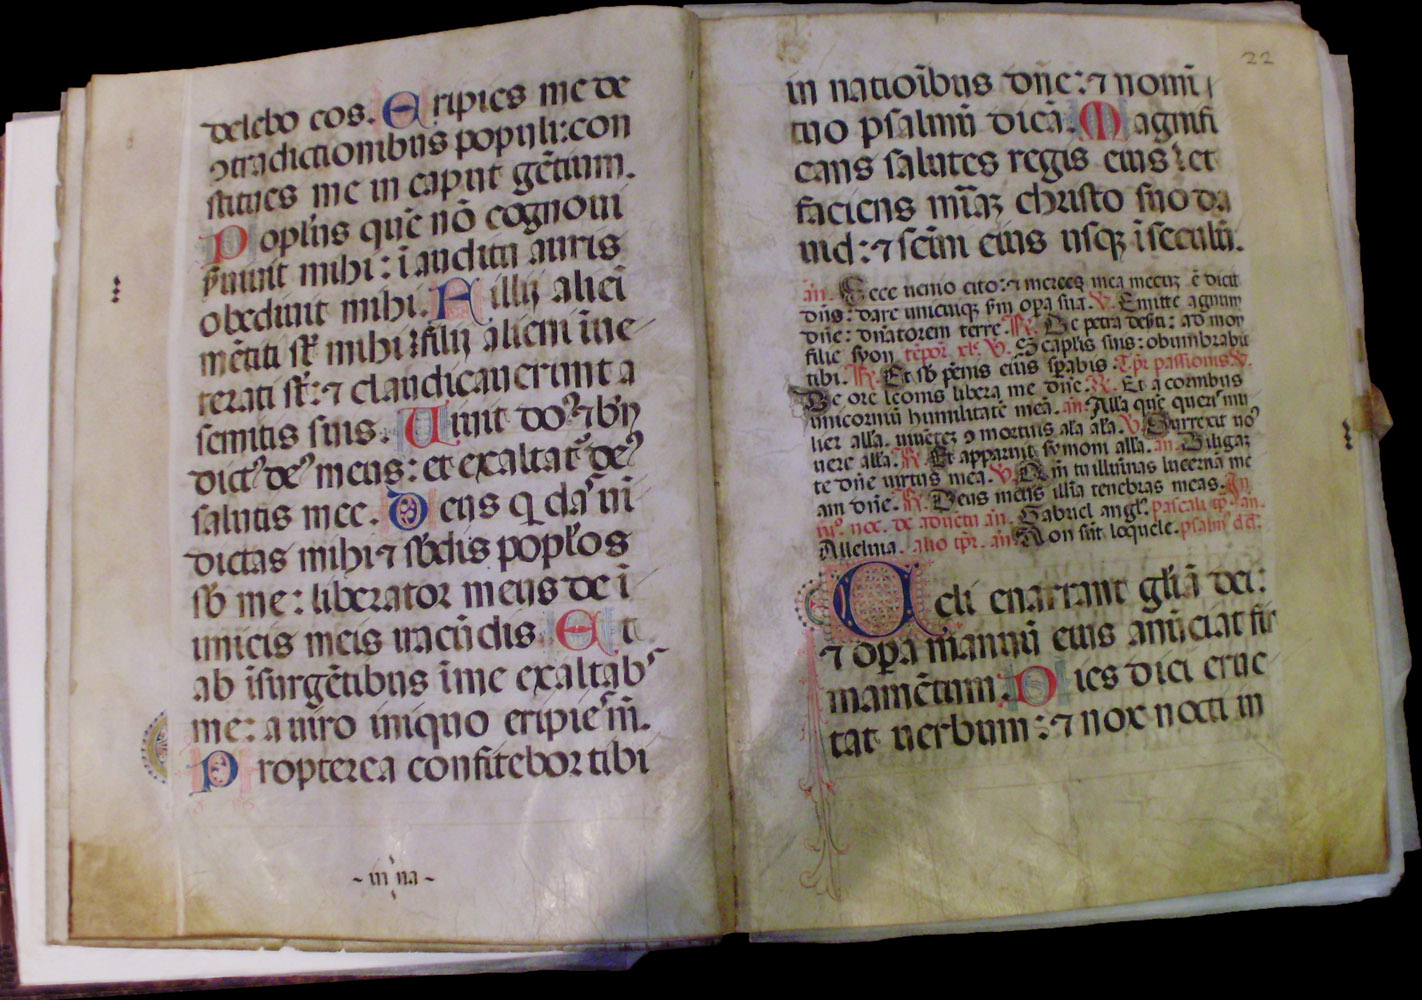 delebo eos. Eripies me de
ↄtradictionibus populi: con
stitues me in caput gētium.
Populus quē nō cognoui
s̄uiuit mihi: ī auditu auris
obediuit mihi. Filij aliei
mētiti sūt mihi: filij alieni īue
terati sūt: ⁊ claudicauerunt a
semitis suis. Uiuit do⁹ ⁊ b̄n
dict⁹ de⁹ meus: et exaltat̄ de⁹
salutis mee. Deus q das uī
dictas mihi ⁊ sb̄dis poplos
sb̄ me: liberator meus de ī
imicis meis iracūdis. Et
ab īsurgētibus īme exaltabˢ
me: a uiro iniquo eripieˢ m̄.
Propterea confitebor tibi
in na
22
in natioībus dn̄e: ⁊ nomī
tuo psalmū dicā. Magnifi
cans salutes regis eius: et
faciens mīaȝ christo suo da
uid: ⁊ seīm eius usqȝ ī seculū.
an̄. Ecce uenio cito: ⁊ merces mea mecuȝ ē dicit
dn̄s: dare unicuiqȝ s̄m opa sua. V. Emitte agnum
dn̄e: dn̄atorem terre. R. De petra desti: ad mon
filie syon tēpor V. Scaplis suis: obumbrabit
tibi. R. Et sb̄ pēnis eius sp̄abis. Tp̄r passionis V.
De ore leonis libera me dn̄e. R. Et a cornibus
unicorniū humilitatē meā. an̄. Alla quē queris mu
lier alla. uiuētez ↄ mortuis ala ala. V. Surrexit dn̄⁹
uere alla. R. Et apparuit symoni alla. an̄. Diligaȝ
te dn̄e uirtus mea. V. Qm̄ tu illuminas lucernā me
am dn̄e. R. Deus meus illīa tenebras meas. In
iij⁰ noc. de aduētu an̄. Gabriel angl⁹. pascali tp̄. an̄.
Alleluia. alio tp̄r. an̄. Non sūt loquele. psalm⁹ dd:
Celi enarrant gl̄iā dei:
⁊ op̄a manuū eius anūciat fir
mamētum. Dies diei eruc
tat uerbum: ⁊ nox nocti in